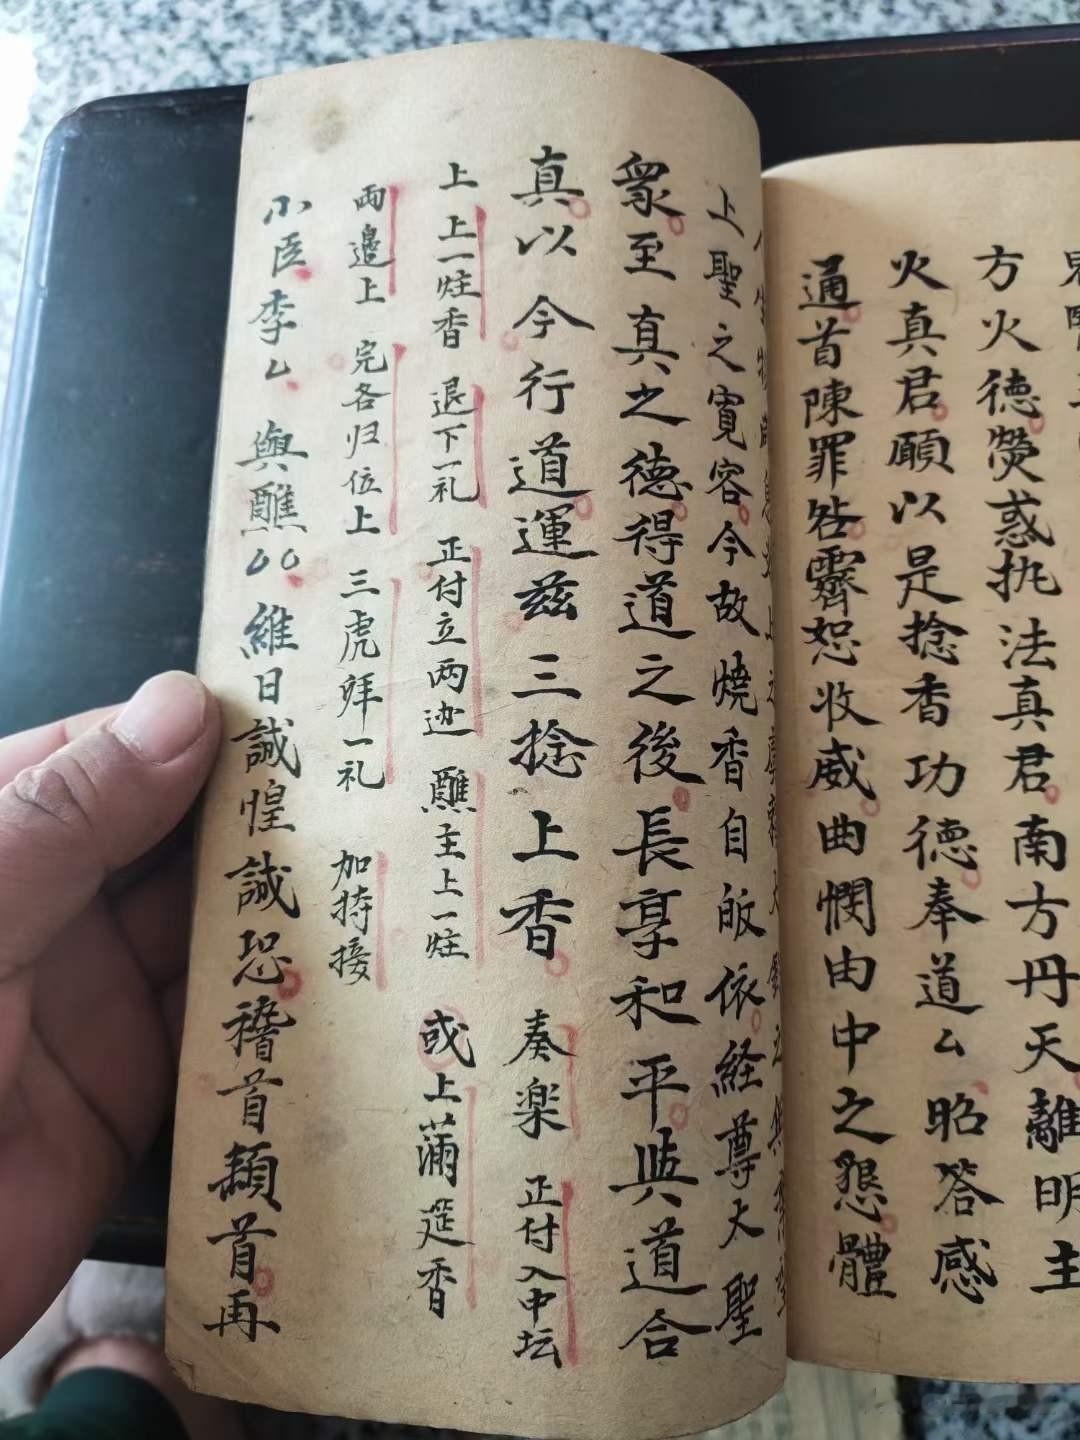 方火德熒惑执法真君南方丹天離明主
火真君願以是捻香功德奉道厶昭答感
通首陳罪咎霽恕收威曲憫由中之懇體
上聖之寛容今故燒香自皈依経尊大聖
衆至真之德得道之後長享和平與道合
真以今行道運兹三捻上香 奏楽 正付入中坛
上 上一炷香 退下一礼 正付立两边 醮主上一炷 或上蒲筵香
兩邊上 完各归位上 三虎拜一礼 加持接
小臣李厶 與醮厶厶 維日誠惶誠恐稽首頓首再